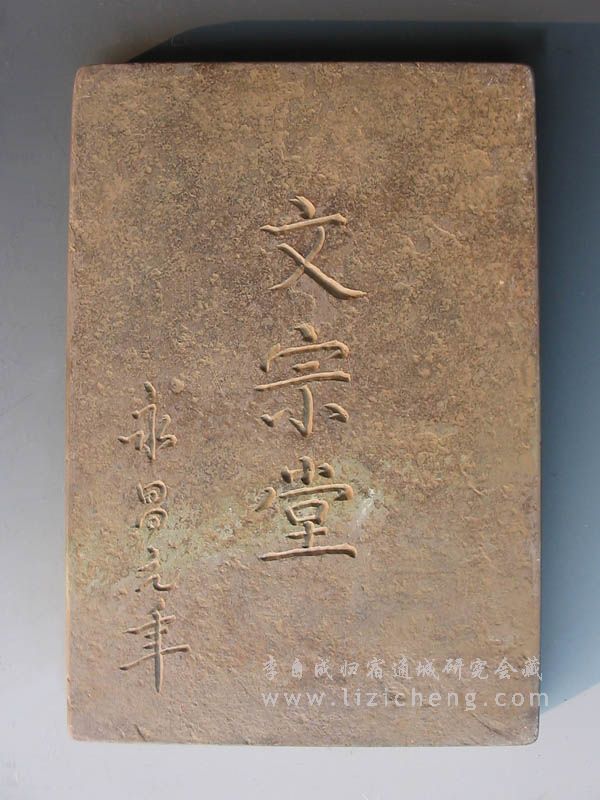 文宗堂
永昌元年
李自成归宿通城研究会藏
www.lizicheng.com